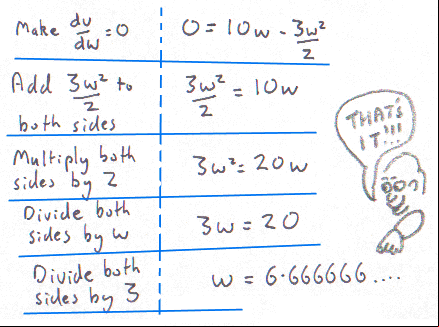 Make dv/dw = 0
0 = 10w - 3w²/2
Add 3w²/2 to
both sides
3w²/2 = 10w
THAT'S
IT!!!
Multiply both
sides by 2
3w² = 20w
Divide both
sides by w
3w = 20
Divide both
sides by 3
w = 6·666666....